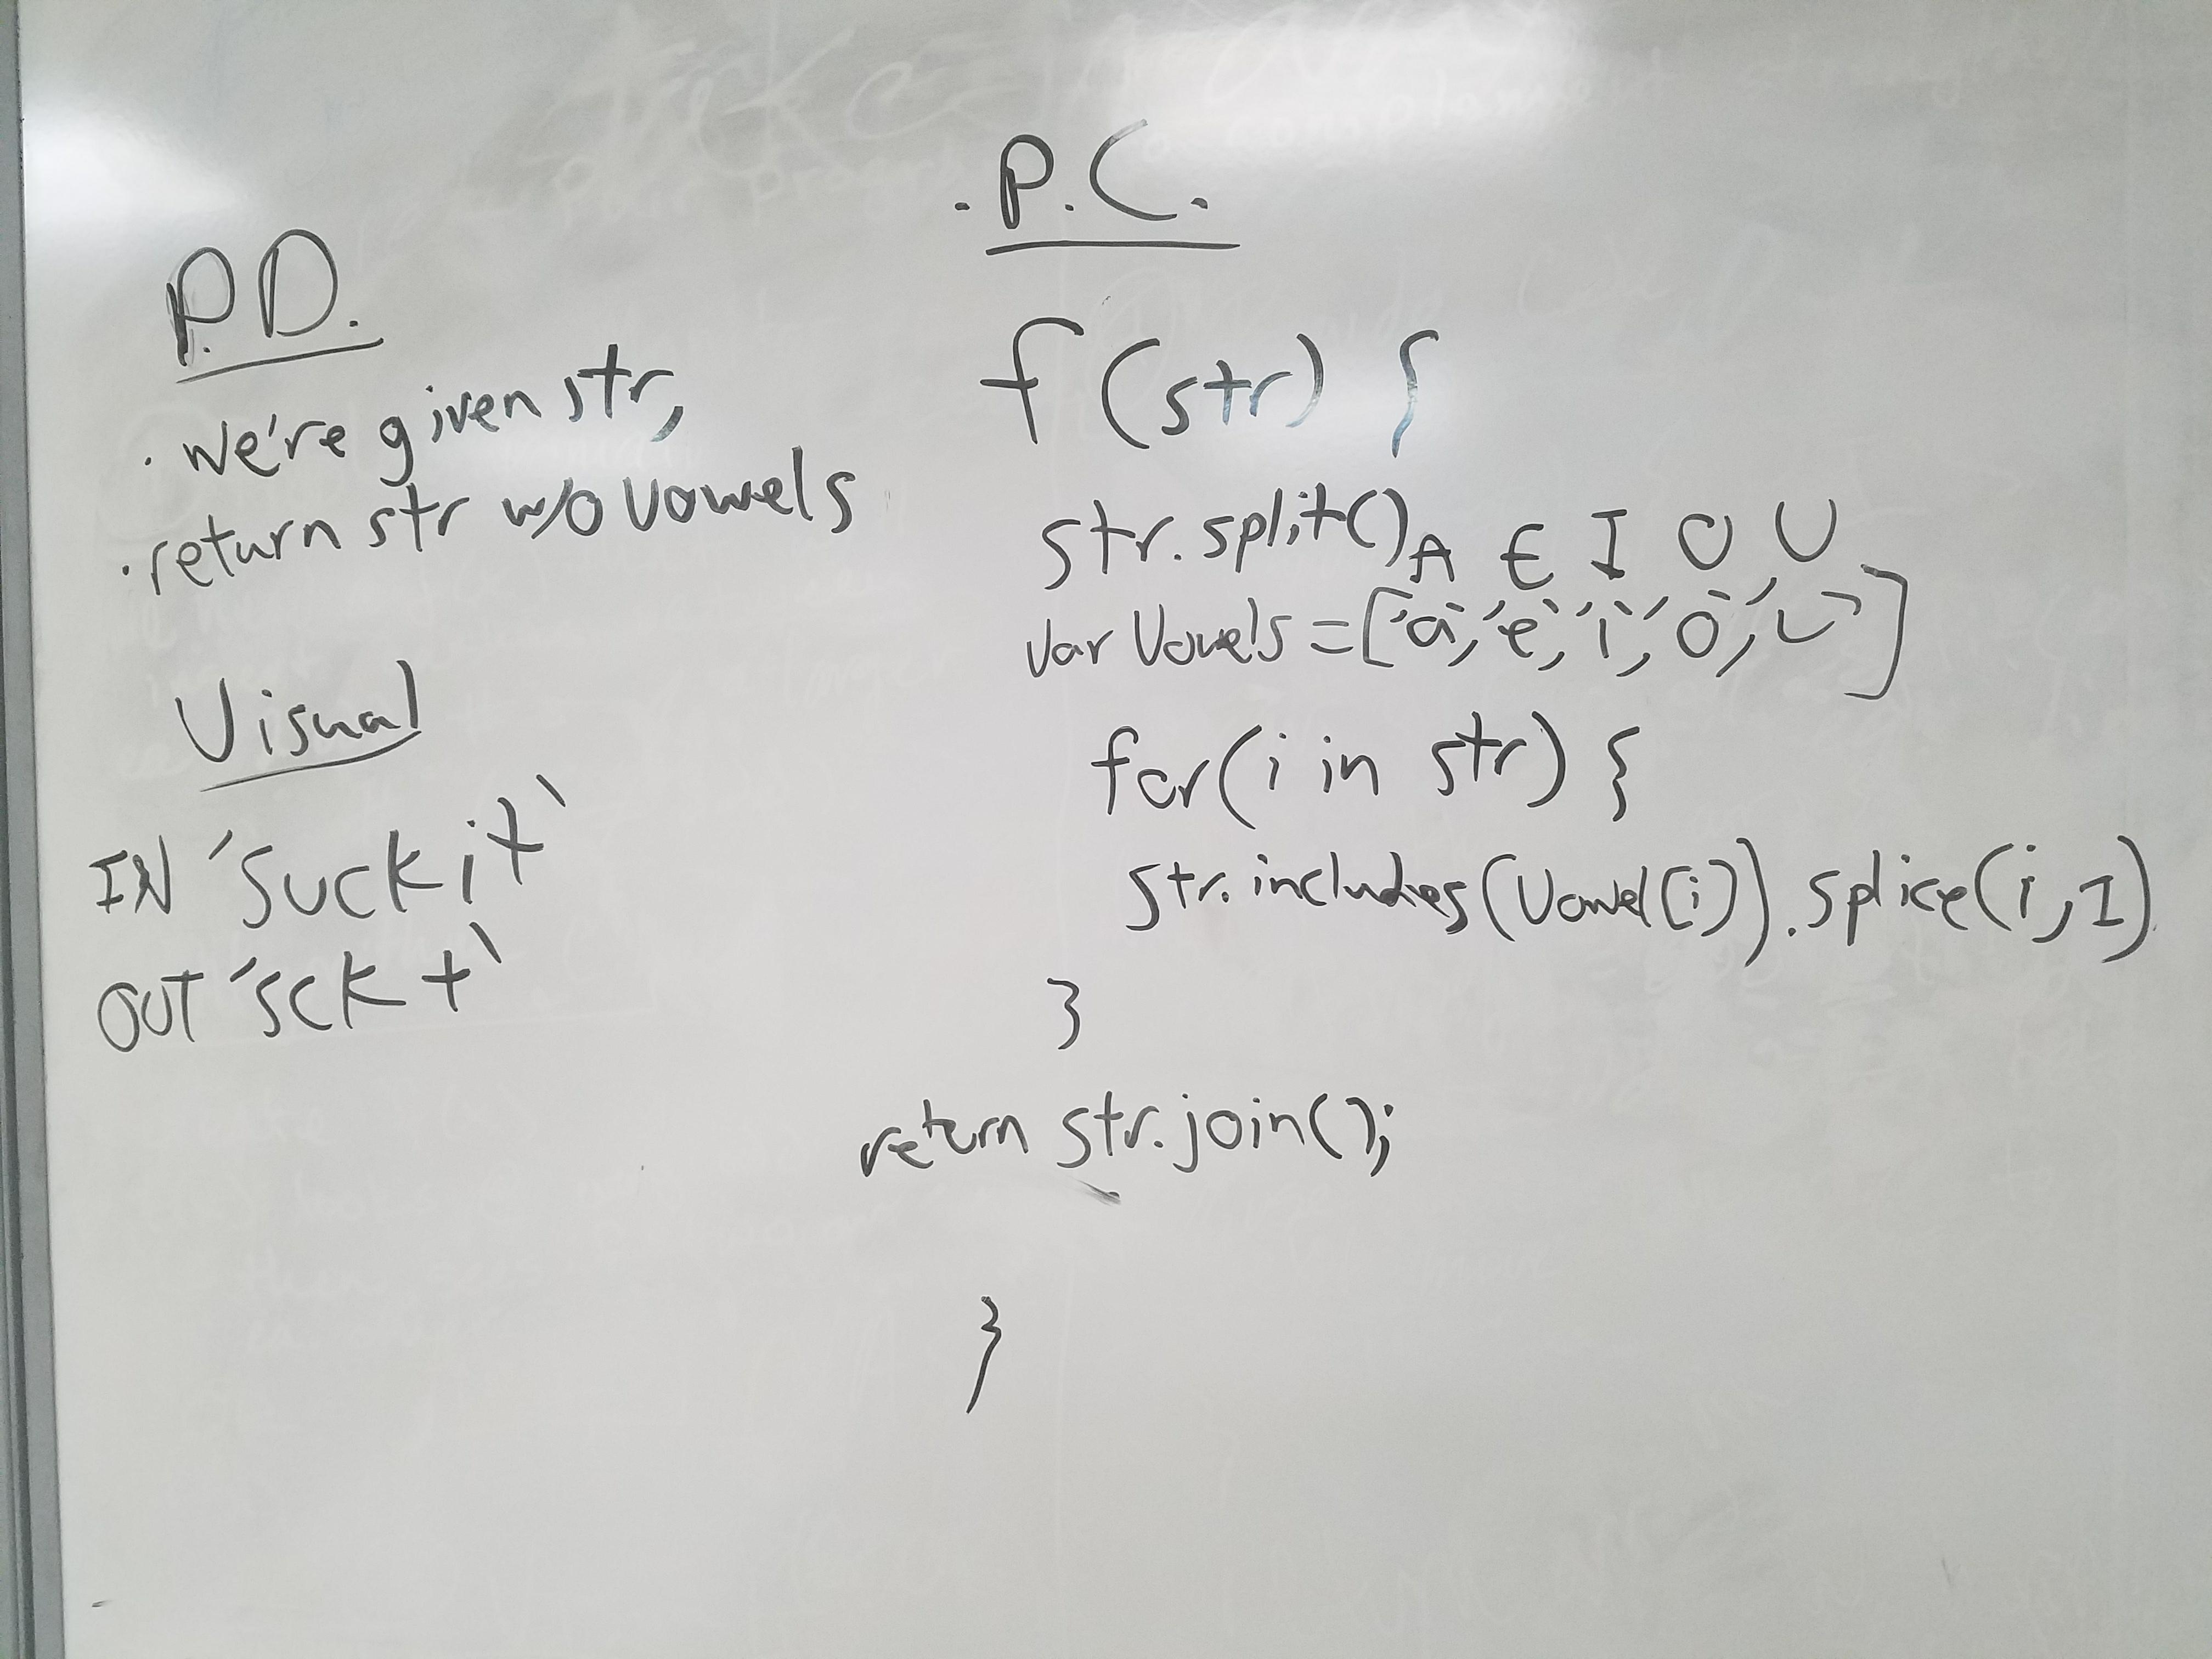 P.D.
· we're given str,
· return str w/o vowels
Visual
IN 'suckit`
OUT 'sckt`
. P.C.
f (str) {
str. split()
A E I O U
var Vowels = ['a', 'e', 'i', 'o', 'u']
for(i in str) {
str. includes(Vowel[i]). splice(i, I)
}
return str.join();
}